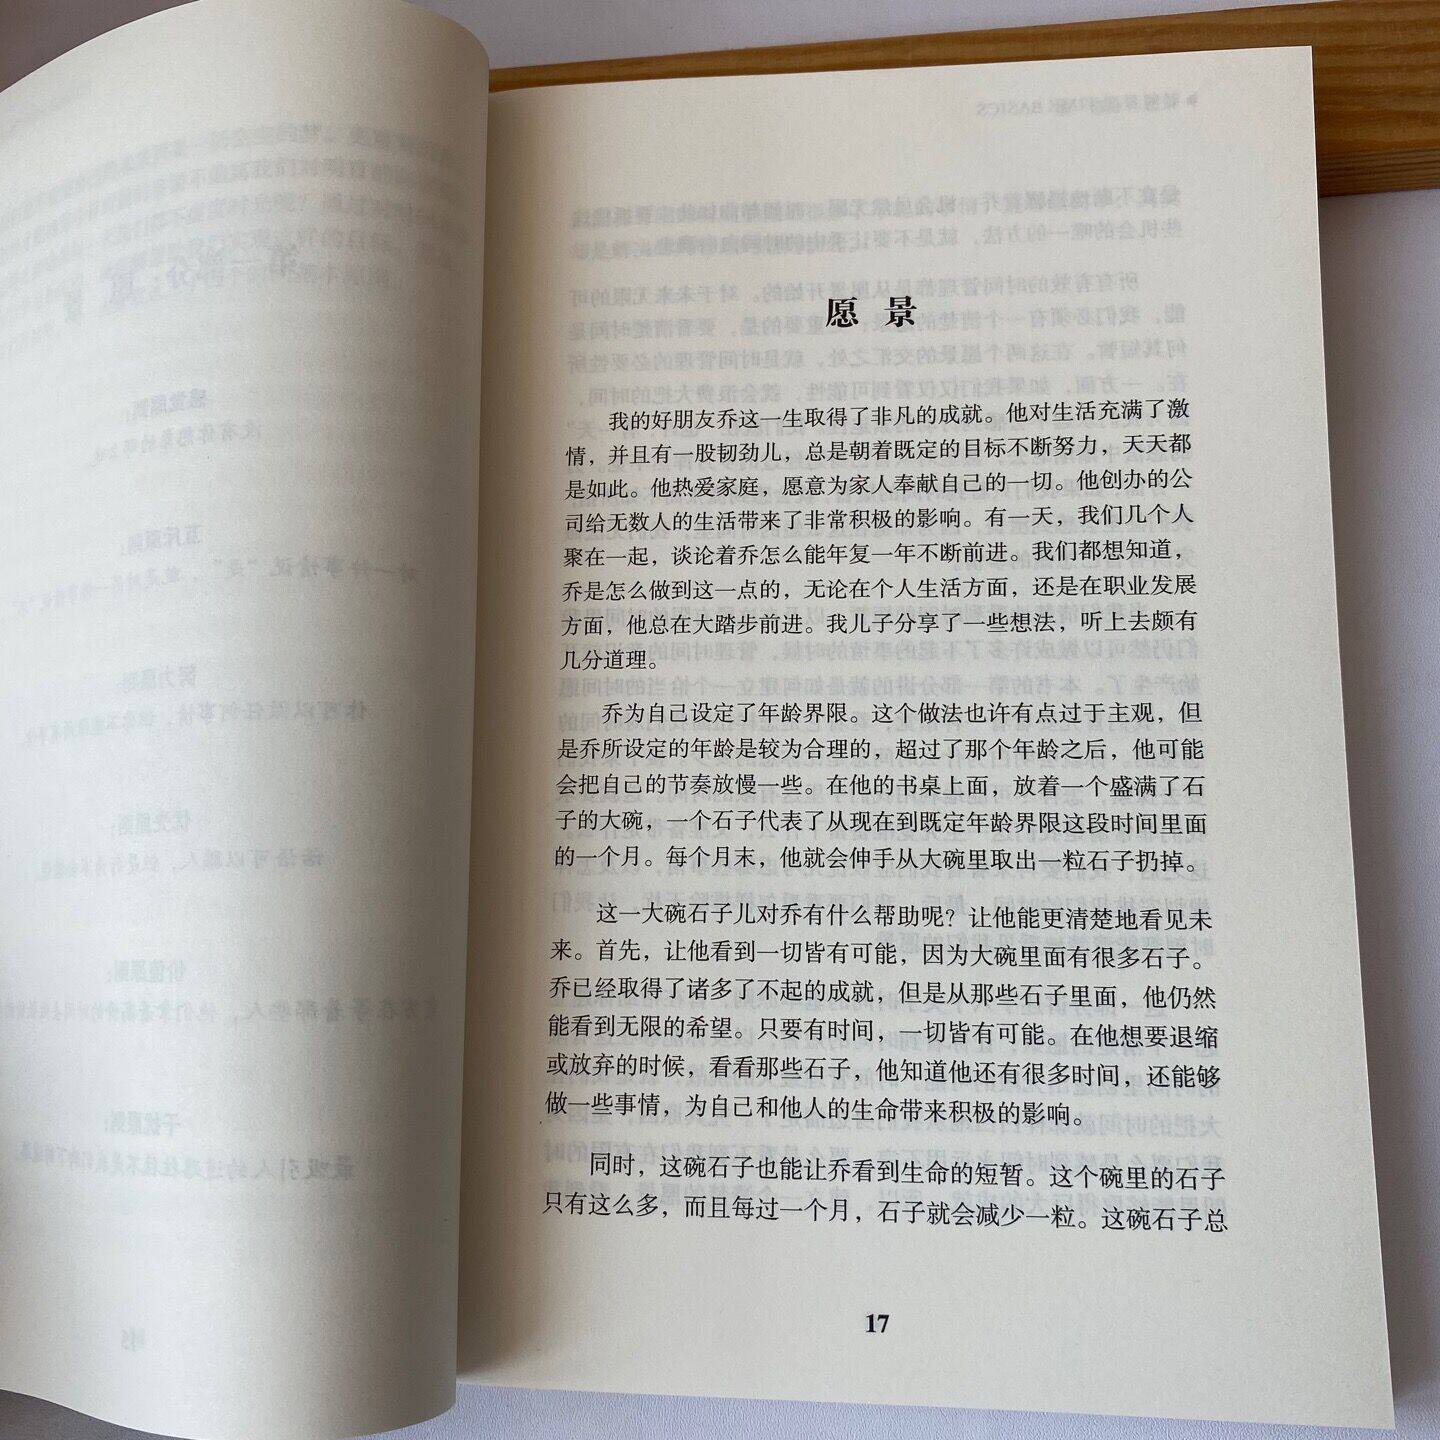 愿景
我的好朋友乔这一生取得了非凡的成就。他对生活充满了激
情，并且有一股韧劲儿，总是朝着既定的目标不断努力，天天都
是如此。他热爱家庭，愿意为家人奉献自己的一切。他创办的公
司给无数人的生活带来了非常积极的影响。有一天，我们几个人
聚在一起，谈论着乔怎么能年复一年不断前进。我们都想知道，
乔是怎么做到这一点的，无论在个人生活方面，还是在职业发展
方面，他总在大踏步前进。我儿子分享了一些想法，听上去颇有
几分道理。
乔为自己设定了年龄界限。这个做法也许有点过于主观，但
是乔所设定的年龄是较为合理的，超过了那个年龄之后，他可能
会把自己的节奏放慢一些。在他的书桌上面，放着一个盛满了石
子的大碗，一个石子代表了从现在到既定年龄界限这段时间里面
的一个月。每个月末，他就会伸手从大碗里取出一粒石子扔掉。
这一大碗石子儿对乔有什么帮助呢？让他能更清楚地看见未
来。首先，让他看到一切皆有可能，因为大碗里面有很多石子。
乔已经取得了诸多了不起的成就，但是从那些石子里面，他仍然
能看到无限的希望。只要有时间，一切皆有可能。在他想要退缩
或放弃的时候，看看那些石子，他知道他还有很多时间，还能够
做一些事情，为自己和他人的生命带来积极的影响。
同时，这碗石子也能让乔看到生命的短暂。这个碗里的石子
只有这么多，而且每过一个月，石子就会减少一粒。这碗石子总
17